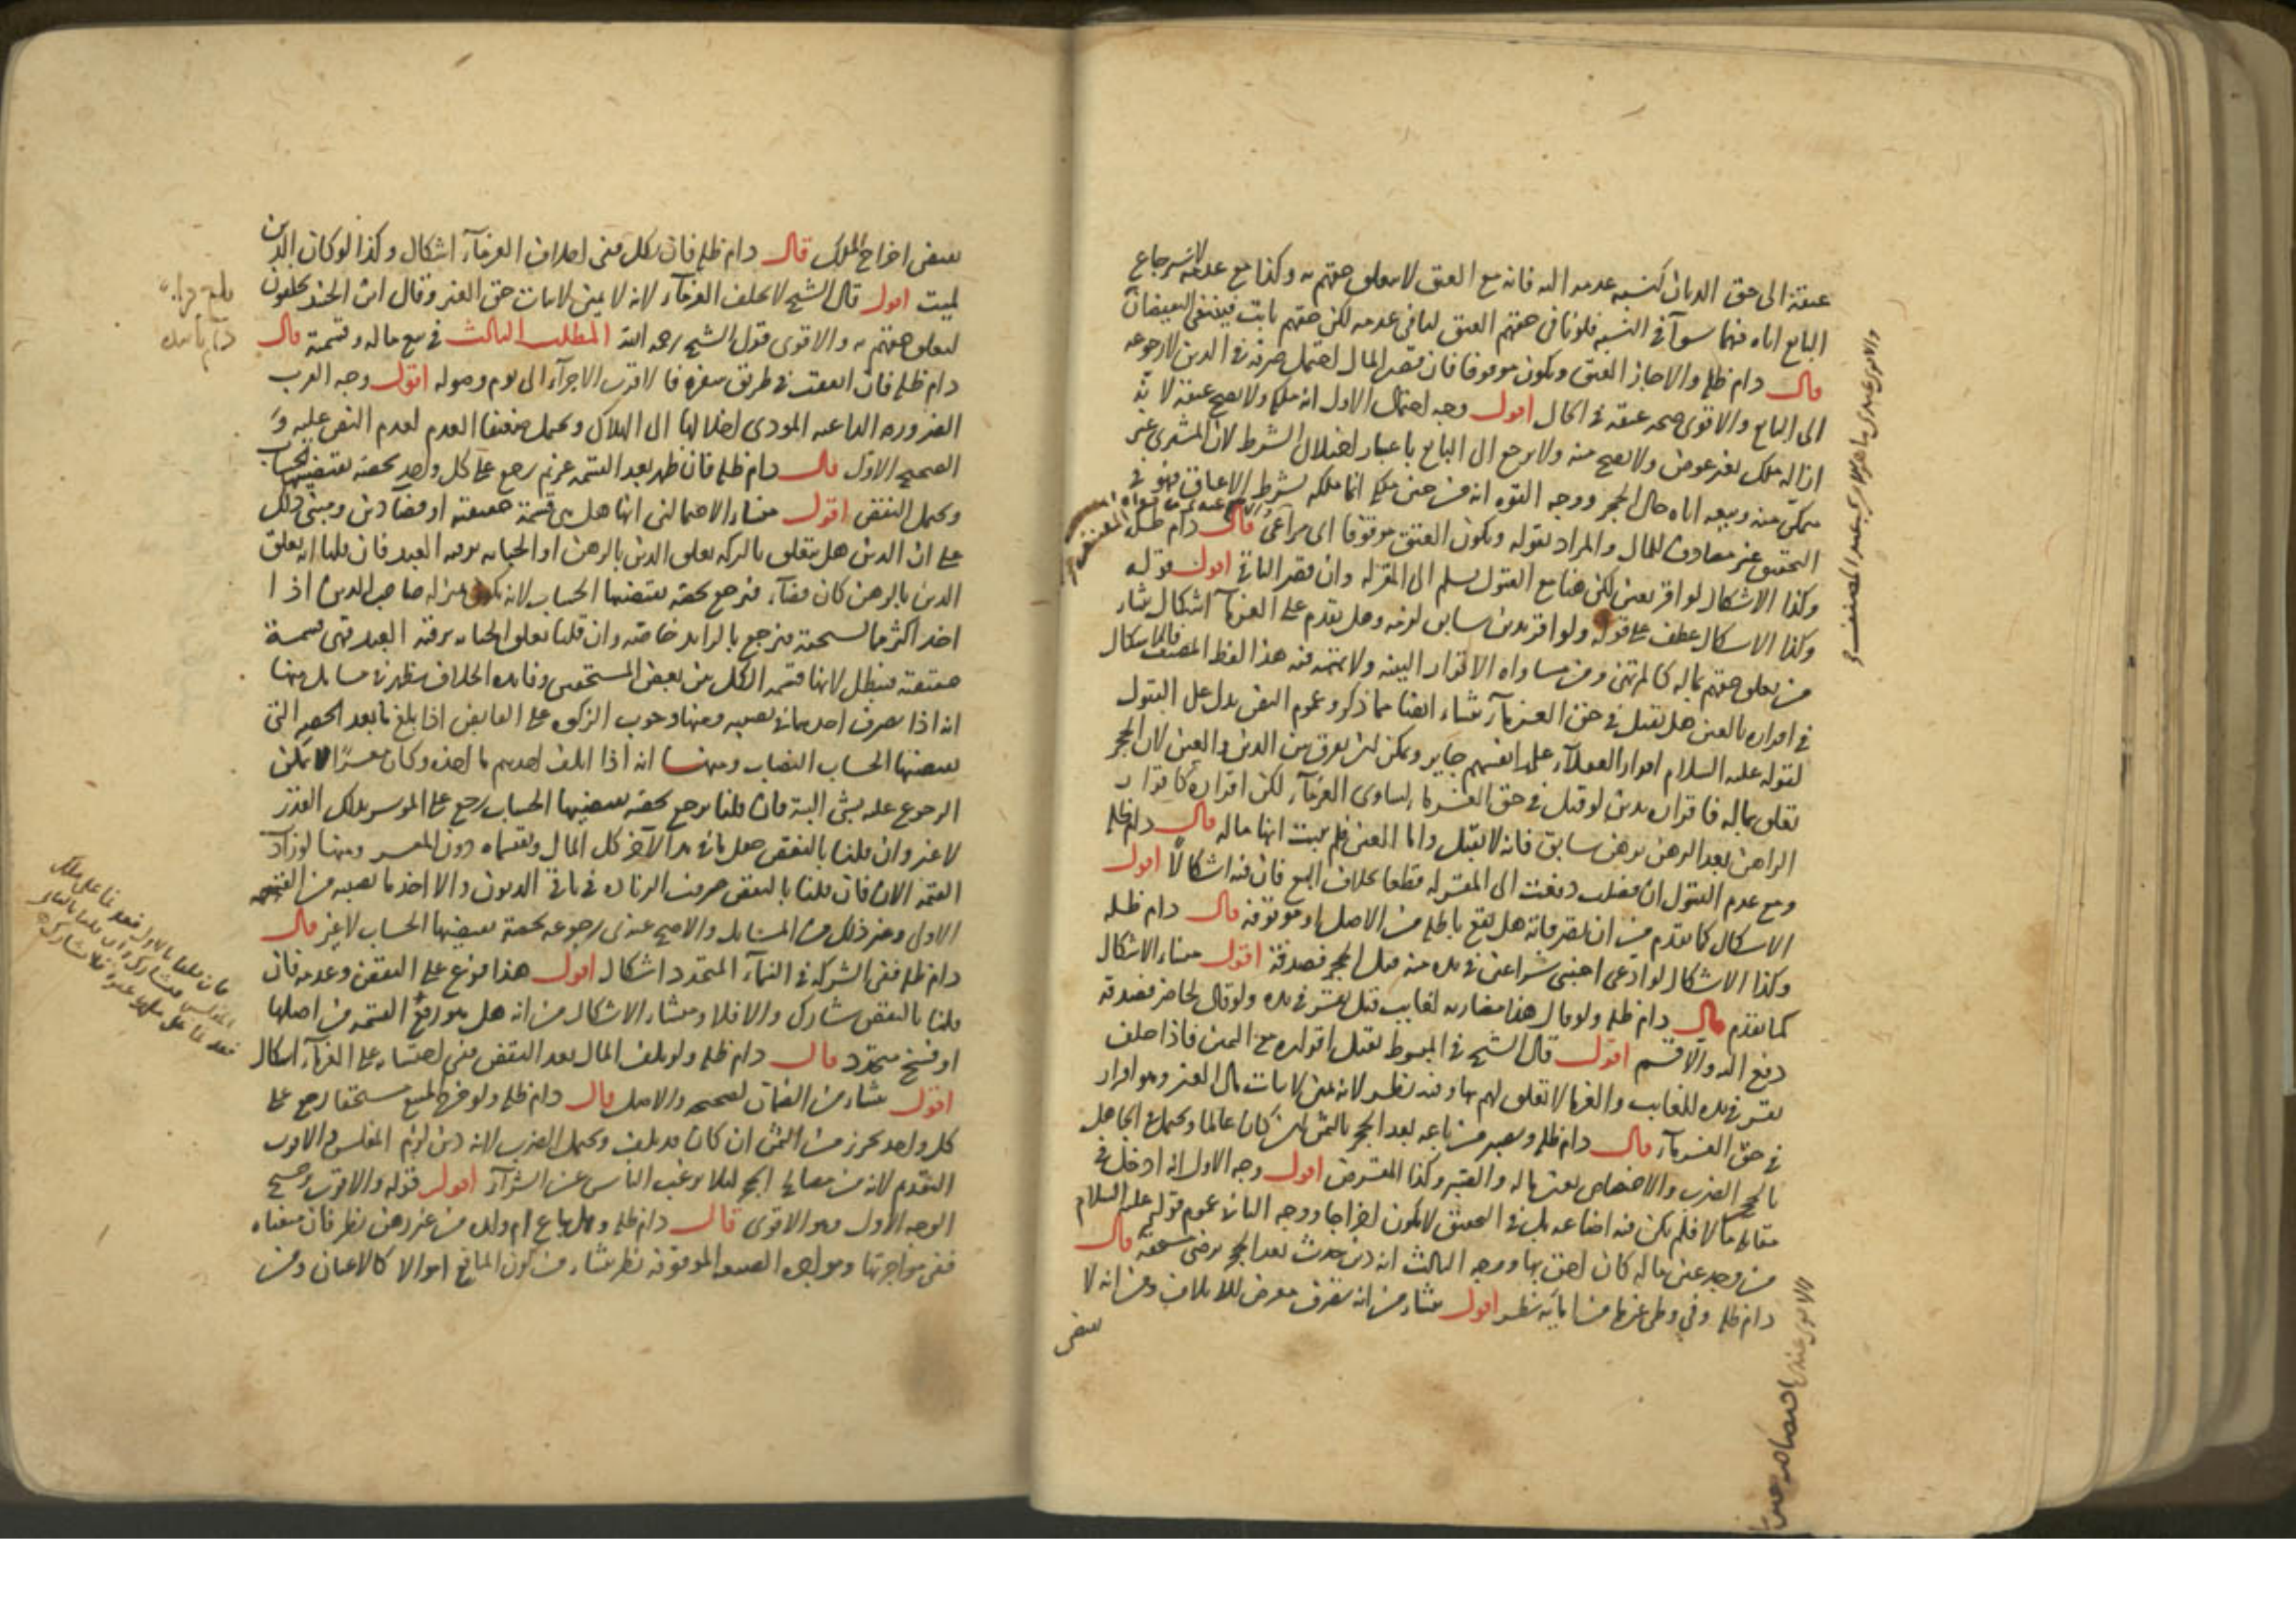 عتقه الى حق الديان كنسبه عدمه اليه فانه مع العتق لا يتعلق حقهم به وكذا مع عدمه لاسترجاع
البايع اياه فهما سوآ في النسبه فلو نافى حقهم العتق لنافى عدمه لكن حقهم ثابت فينتفي
قال دام ظله والا جاز العتق ويكون موقوفا فان قصر المال احتمل صرفه في الدين لا رجوعه
الى البايع والاقوى صحه عتقه في الحال اقول وجه احتمال الاول انه ملكه ولا يصح عتقه لانه
ازاله ملك بغير عوض ولا يصح منه ولا يرجع الى البايع باعتبار اختلال الشرط لان المشتري غير
ممكن منه وبيعه اياه حال الحجر ووجه القوه انه من حين ملكه انما ملكه بشرط الاعتاق فهو في
التحقيق غير مصادف للمال والمراد بقوله ويكون العتق موقوفا اى مراعى قال دام ظله
وكذا الاشكال لو اقر بعين لكن هنا مع القبول يسلم الى المقر له وان قصر الباقي اقول قوله
وكذا الاشكال عطف على قوله ولو اقر بدين سابق لزمه وهل يقدم على الغرمآ اشكال ينشأ
من تعلق حقهم بماله كالمرتهن ومن مساواه الاقرار البينه ولا تهمه فيه هذا لفظ المصنف فالاشكال
في اقراره بالعين هل يقبل في حق الغرمآ ينشاء ايضا مما ذكر وعموم النص يدل على القبول
لقوله عليه السلام اقرار العقلآ على انفسهم جايز ويمكن ان يفرق بين الدين والعين لان الحجر
تعلق بماله فاقراره بدين لو قبل في حق الغرما لساوى الغرمآ لكن اقراره كاقرار
الراهن بعد الرهن برهن سابق فانه لا يقبل واما العين فلم يثبت انها ماله قال دام ظله
ومع عدم القبول ان فضلت دفعت الى المقر له قطعا بخلاف البيع فان فيه اشكالا اقول
الاشكال كما تقدم من ان تصرفاته هل تقع باطله من الاصل او موقوفه قال دام ظله
وكذا الاشكال لو ادعى اجنبي شرا عين في يده منه قبل الحجر فصدقه اقول منشاء الاشكال
كما تقدم قال دام ظله ولو قال هذا مضاربه لغايب قيل يقر في يده ولو قال لحاضر فصدقه
دفع اليه والا قسم اقول قال الشيخ في المبسوط يقبل اقراره مع اليمين فاذا حلف
يقر في يده للغايب والغرما لا تعلق لهم بها وفيه نظر لانه يمين لاثبات مال الغير وهو اقرار
في حق الغرمآ قال دام ظله ويصبر من باعه بعد الحجر بالثمن ان كان عالما ويحتمل في الجاهل
بالحجر الضرب والاختصاص بعين ماله والصبر وكذا المقرض اقول وجه الاول انه ادخل في
مقابله مالا فلم يكن فيه اضاعه بل في التحقيق لا يكون اخراجا ووجه الثاني عموم قوله عليه السلام
من وجد عين ماله كان احق بها ووجه الثالث انه دين حدث بعد الحجر برضى مستحقه قال
دام ظله وفي وطى غرما من ايامه نظر اقول ينشاء من انه تصرف معرض للاتلاف ومن انه لا
يقتضي
يقتضي اخراج الملك قال دام ظله فان نكل ففي احلاف الغرمآ اشكال وكذا لو كان الدين
لميت اقول قال الشيخ لا يحلف الغرمآ لانه لا يمين لاثبات حق الغير وقال ابن الجنيد يحلفون
لتعلق حقهم به والاقوى قول الشيخ رحمه الله المطلب الثالث في بيع ماله وقسمته قال
دام ظله فان اتفقت في طريق سفره فالاقرب الاجرآ الى يوم وصوله اقول وجه القرب
الضروره الداعيه المودى اخلالها الى الهلاك ويحتمل ضعيفا العدم لعدم النص عليه و
الصحيح الاول قال دام ظله فان ظهر بعد القسمه غريم رجع على كل واحد بحصه يقتضيها الحساب
ويحتمل النقض اقول منشاء الاحتمالين انها هل هي قسمة حقيقيه او قضآ دين ومبنى ذلك
على ان الدين هل يتعلق بالتركه تعلق الدين بالرهن او الجنايه برقبه العبد فان قلنا انه تعلق
الدين بالرهن كان قضآ فيرجع بحصه يقتضيها الحساب لانه يكون بمنزله صاحب الدين اذا
اخذ اكثر مما يستحقه فيرجع بالزايد خاصه وان قلنا تعلق الجنايه برقبه العبد فهي قسمه
حقيقيه فتبطل لانها قسمه الكل بين بعض المستحقين وفايده الخلاف تظهر في مسايل منها
انه اذا تصرف احدهما في نصيبه ومنها وجوب الزكوه على القابض اذا بلغ ما بعد الحصه التي
يقتضيها الحساب النصاب ومنها انه اذا اتلف احدهم ما اخذه وكان معسرا لا يمكن
الرجوع عليه بشى البته فان قلنا يرجع بحصه يقتضيها الحساب رجع على الموسر بذلك القدر
لا غير وان قلنا بالنقض جعل ما في يد الآخر كل المال ويقتسماه دون المعسر ومنها لو زاد
القيمه الان فان قلنا بالنقض صرفت الزياده في باقي الديون والا اخذ ما نصيبه من القيمه
الاول وغير ذلك من المسايل والاصح عندى رجوعه بحصة يقتضيها الحساب لا غير قال
دام ظله ففي الشركه في النمآ المتجدد اشكال اقول هذا فرع على النقض وعدمه فان
قلنا بالنقض شارك والا فلا ومنشاء الاشكال من انه هل هو رفع القسمه من اصلها
او فسخ متجدد قال دام ظله ولو تلف المال بعد النقض ففي احتسابه على الغرمآ اشكال
اقول ينشاء من الضمان لصحيحه والاصل قال دام ظله ولو خرج المبيع مستحقا رجع على
كل واحد بجزء من الثمن ان كان قد تلف ويحتمل الضرب لانه دين لزم المفلس والاقرب
التقدم لانه من مصالح الحجر ليلا يرغب الناس عن الشرآ اقول قوله والاقرب ترجيح
الوجه الاول وهو الاقوى قال دام ظله وهل يباع ام ولده من غير رهن نظر فان منعناه
ففي مواجرتها ومواجره الضيعه الموقوفه نظر ينشاء من كون المنافع اموالا كالاعيان ومن